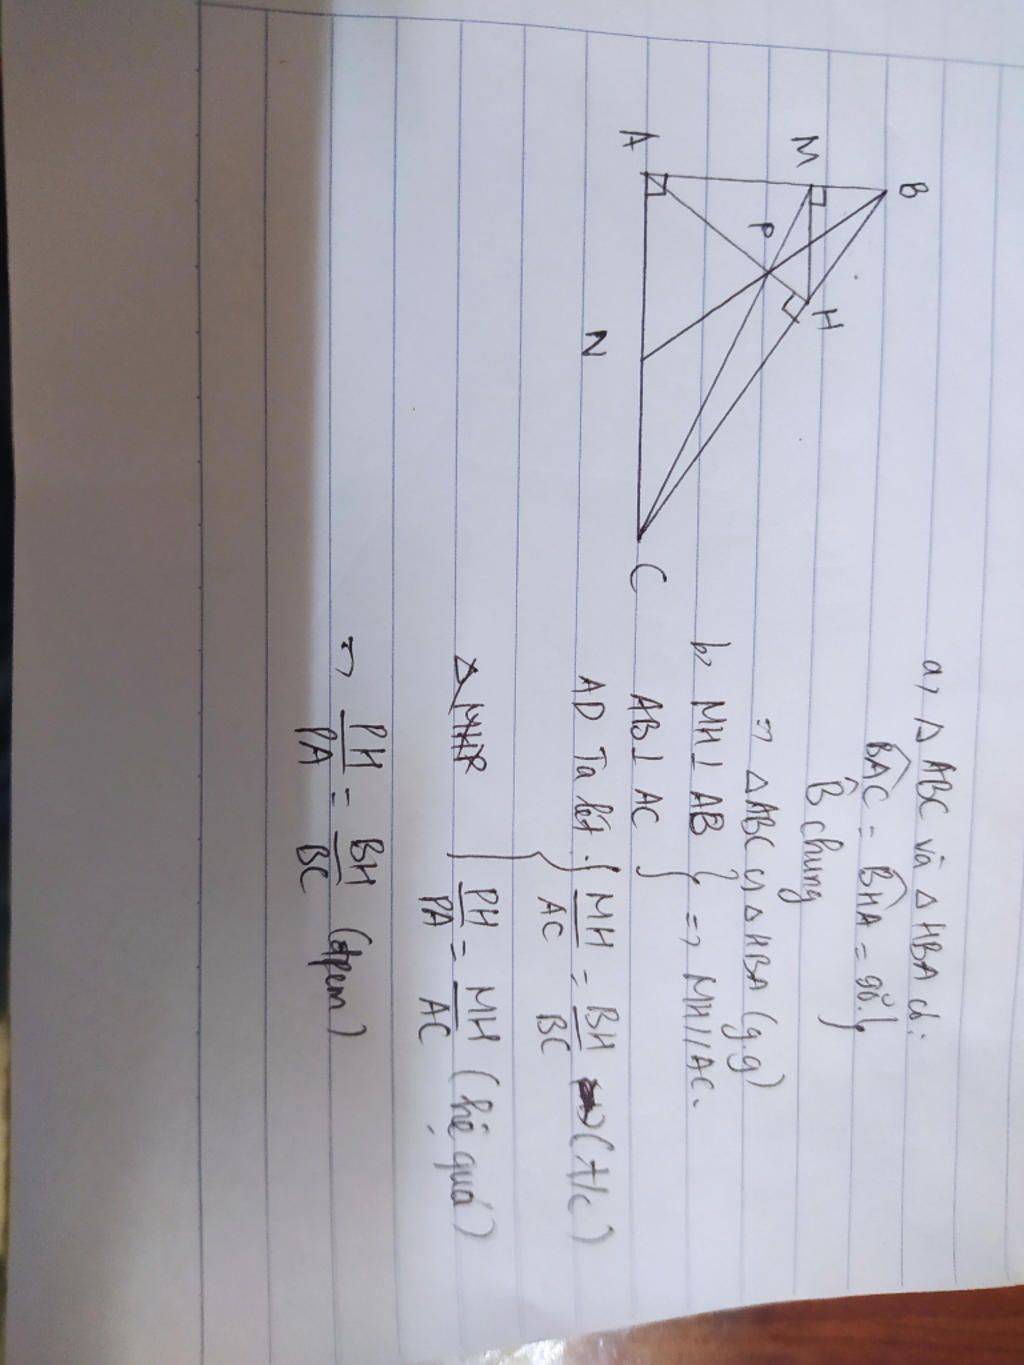 B
M
H
P
A
N
C
a, △ABC và △HBA có:
BAC = BHA = 90°
B chung
=> △ABC ∽ △HBA (g.g)
b, MH ⊥ AB
AB ⊥ AC
=> MH // AC.
AD Ta lét: MH/AC = BH/BC (t/c)
PH/PA = MH/AC (hệ quả)
=> PH/PA = BH/BC (đpcm)